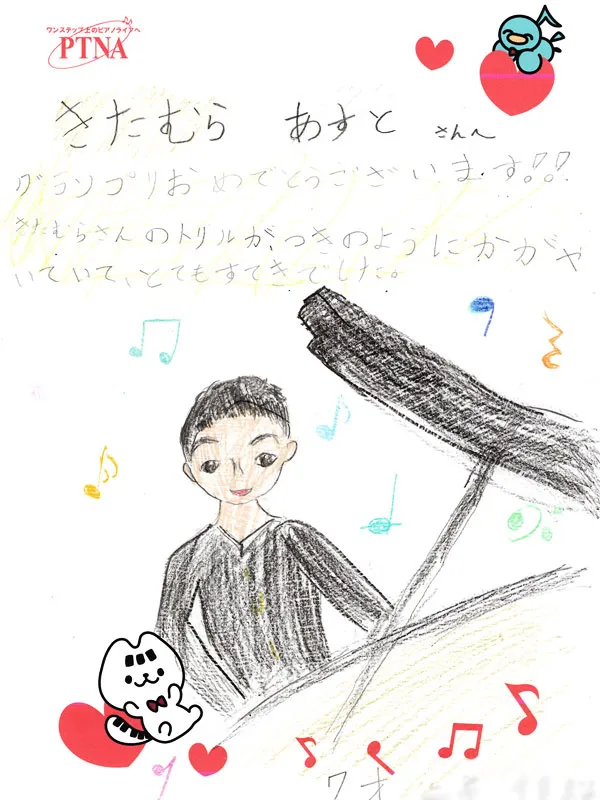 ワンステップ上のピアノライフへ
PTNA
きたむら あすと さんへ
グランプリおめでとうございます!!!
きたむらさんのトリルが、つきのようにかがや
いていて、とてもすてきでした。
7才